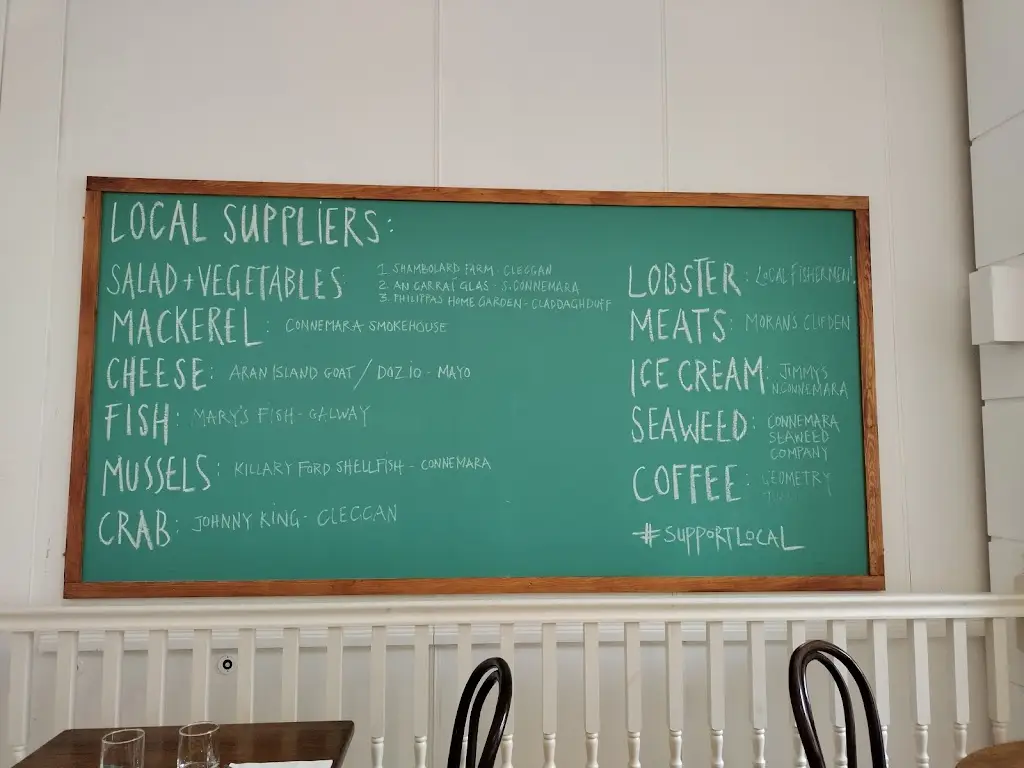 LOCAL SUPPLIERS:
SALAD + VEGETABLES
1. SHAMBOLARD FARM CLEGGAN
2. AN GARRAÍ GLAS - S. CONNEMARA
3. PHILIPPAS HOME GARDEN - CLADDAGHDUFF
MACKEREL: CONNEMARA SMOKEHOUSE
CHEESE: ARAN ISLAND GOAT / DOZIO - MAYO
FISH: MARY'S FISH - GALWAY
MUSSELS: KILLARY FORD SHELLFISH - CONNEMARA
CRAB: JOHNNY KING - CLEGGAN
LOBSTER: LOCAL FISHERMEN!
MEATS: MORANS CLIFDEN
ICE CREAM: JIMMYS
N. CONNEMARA
SEAWEED: CONNEMARA
SEAWEED
COMPANY
COFFEE: GEOMETRY
#SUPPORTLOCAL